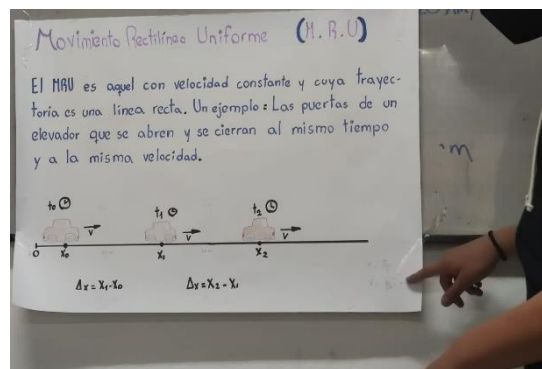 Movimiento Rectilíneo Uniforme (M.R.U)
El MRU es aquel con velocidad constante y cuya trayec-
toria es una linea recta. Un ejemplo: Las puertas de un
elevador que se abren y se cierran al mismo tiempo
y a la misma velocidad.
t₀ t₁ t₂
v v v
0 X₀ X₁ X₂
Δx = X₁-X₀ Δx = X₂ - X₁
m